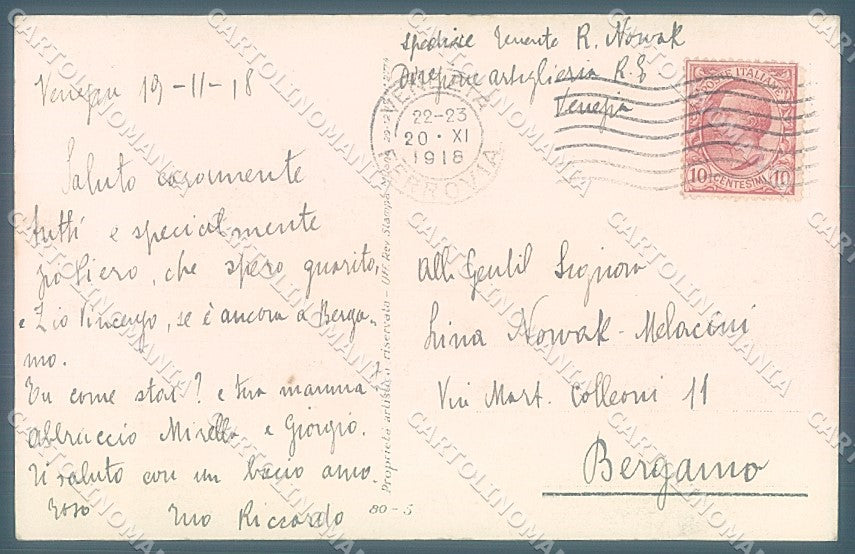 Venezia 19-11-18
Saluto caramente
tutti e specialmente
che spero guarito,
e Zio Vincenzo, se è ancora a Berga-
mo.
Tu come stai? e tua mamma?
Abbraccio Mirella e Giorgio.
Ti saluto con un bacio amo-
roso Tuo Riccardo
spedisce Tenente R. Nowak
Direzione artiglieria R. E
Venezia
VENEZIA
22-23
20 · XI
1918
FERROVIA
POSTE ITALIANE
10 CENTESIMI 10
Alla Gentil Signora
Lina Nowak-Melacini
Via Mart. Colleoni 11
Bergamo
Proprietà artistica riservata - Uff. Rev. Stampa
80-5
CARTOLINOMANIA